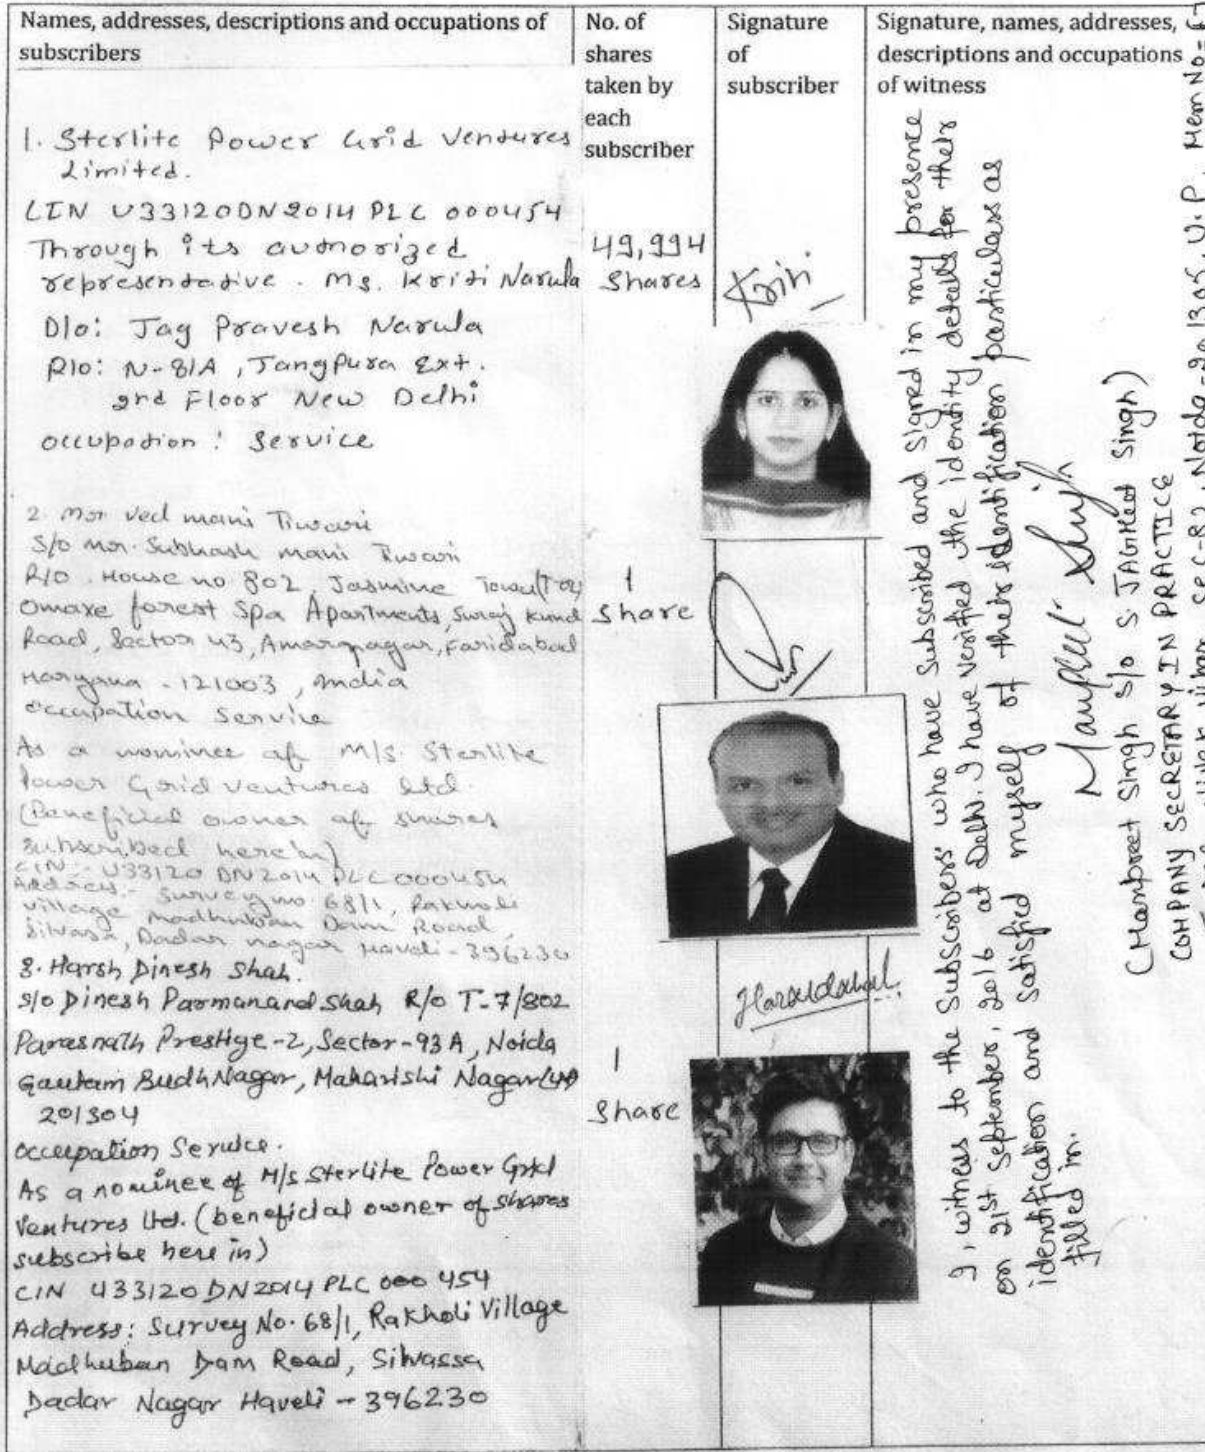 Names, addresses, descriptions and occupations of
subscribers
No. of
shares
taken by
each
subscriber
Signature
of
subscriber
Signature, names, addresses,
descriptions and occupations
of witness
1. Sterlite Power Grid Ventures
Limited.
CIN U33120DN2014PLC 000454
Through its authorized
representative. Ms. Kriti Narula
D/o: Jag Pravesh Narula
R/o: N-81A, Jangpura Ext.
2nd Floor New Delhi
occupation: Service
49,994
Shares
Kriti
2. Mr. Ved mani Tiwari
S/o mr. Subhash mani Tiwari
R/o. House no 802, Jasmine Tower
Omaxe forest Spa Apartments, Suraj Kund
Road, Sector 43, Amarnagar, Faridabad
Haryana - 121003, India
occupation Service
As a nominee of M/s. Sterlite
Power Grid Ventures Ltd
(Beneficial owner of shares
subscribed herein)
CIN:- U33120 DN2014 PLC000454
Address:- Survey no 68/1, Rakholi
Village Madhuban Dam Road,
Silvassa, Dadar nagar Haveli - 396230
1
Share
3. Harsh Dinesh Shah.
S/o Dinesh Parmanand Shah R/o T-7/802
Parasnath Prestige-2, Sector-93A, Noida
Gautam Budh Nagar, Maharishi Nagar (UP)
201304
occupation Service.
As a nominee of M/s Sterlite Power Grid
Ventures Ltd. (beneficial owner of shares
subscribe here in)
CIN U33120DN2014PLC000454
Address: Survey No. 68/1, Rakholi Village
Madhuban Dam Road, Silvassa
Dadar Nagar Haveli - 396230
1
Share
I, witness to the Subscribers who have Subscribed and signed in my presence
on 21st September, 2016 at Delhi. I have verified the identity details for their
identification and satisfied myself of their identification particulars as
filled in.
Manpreet Singh
(Manpreet Singh S/o S. JAGJEET Singh)
COMPANY SECRETARY IN PRACTICE
Vihar, Sec-82, Noida-201305, U.P. Mem No-